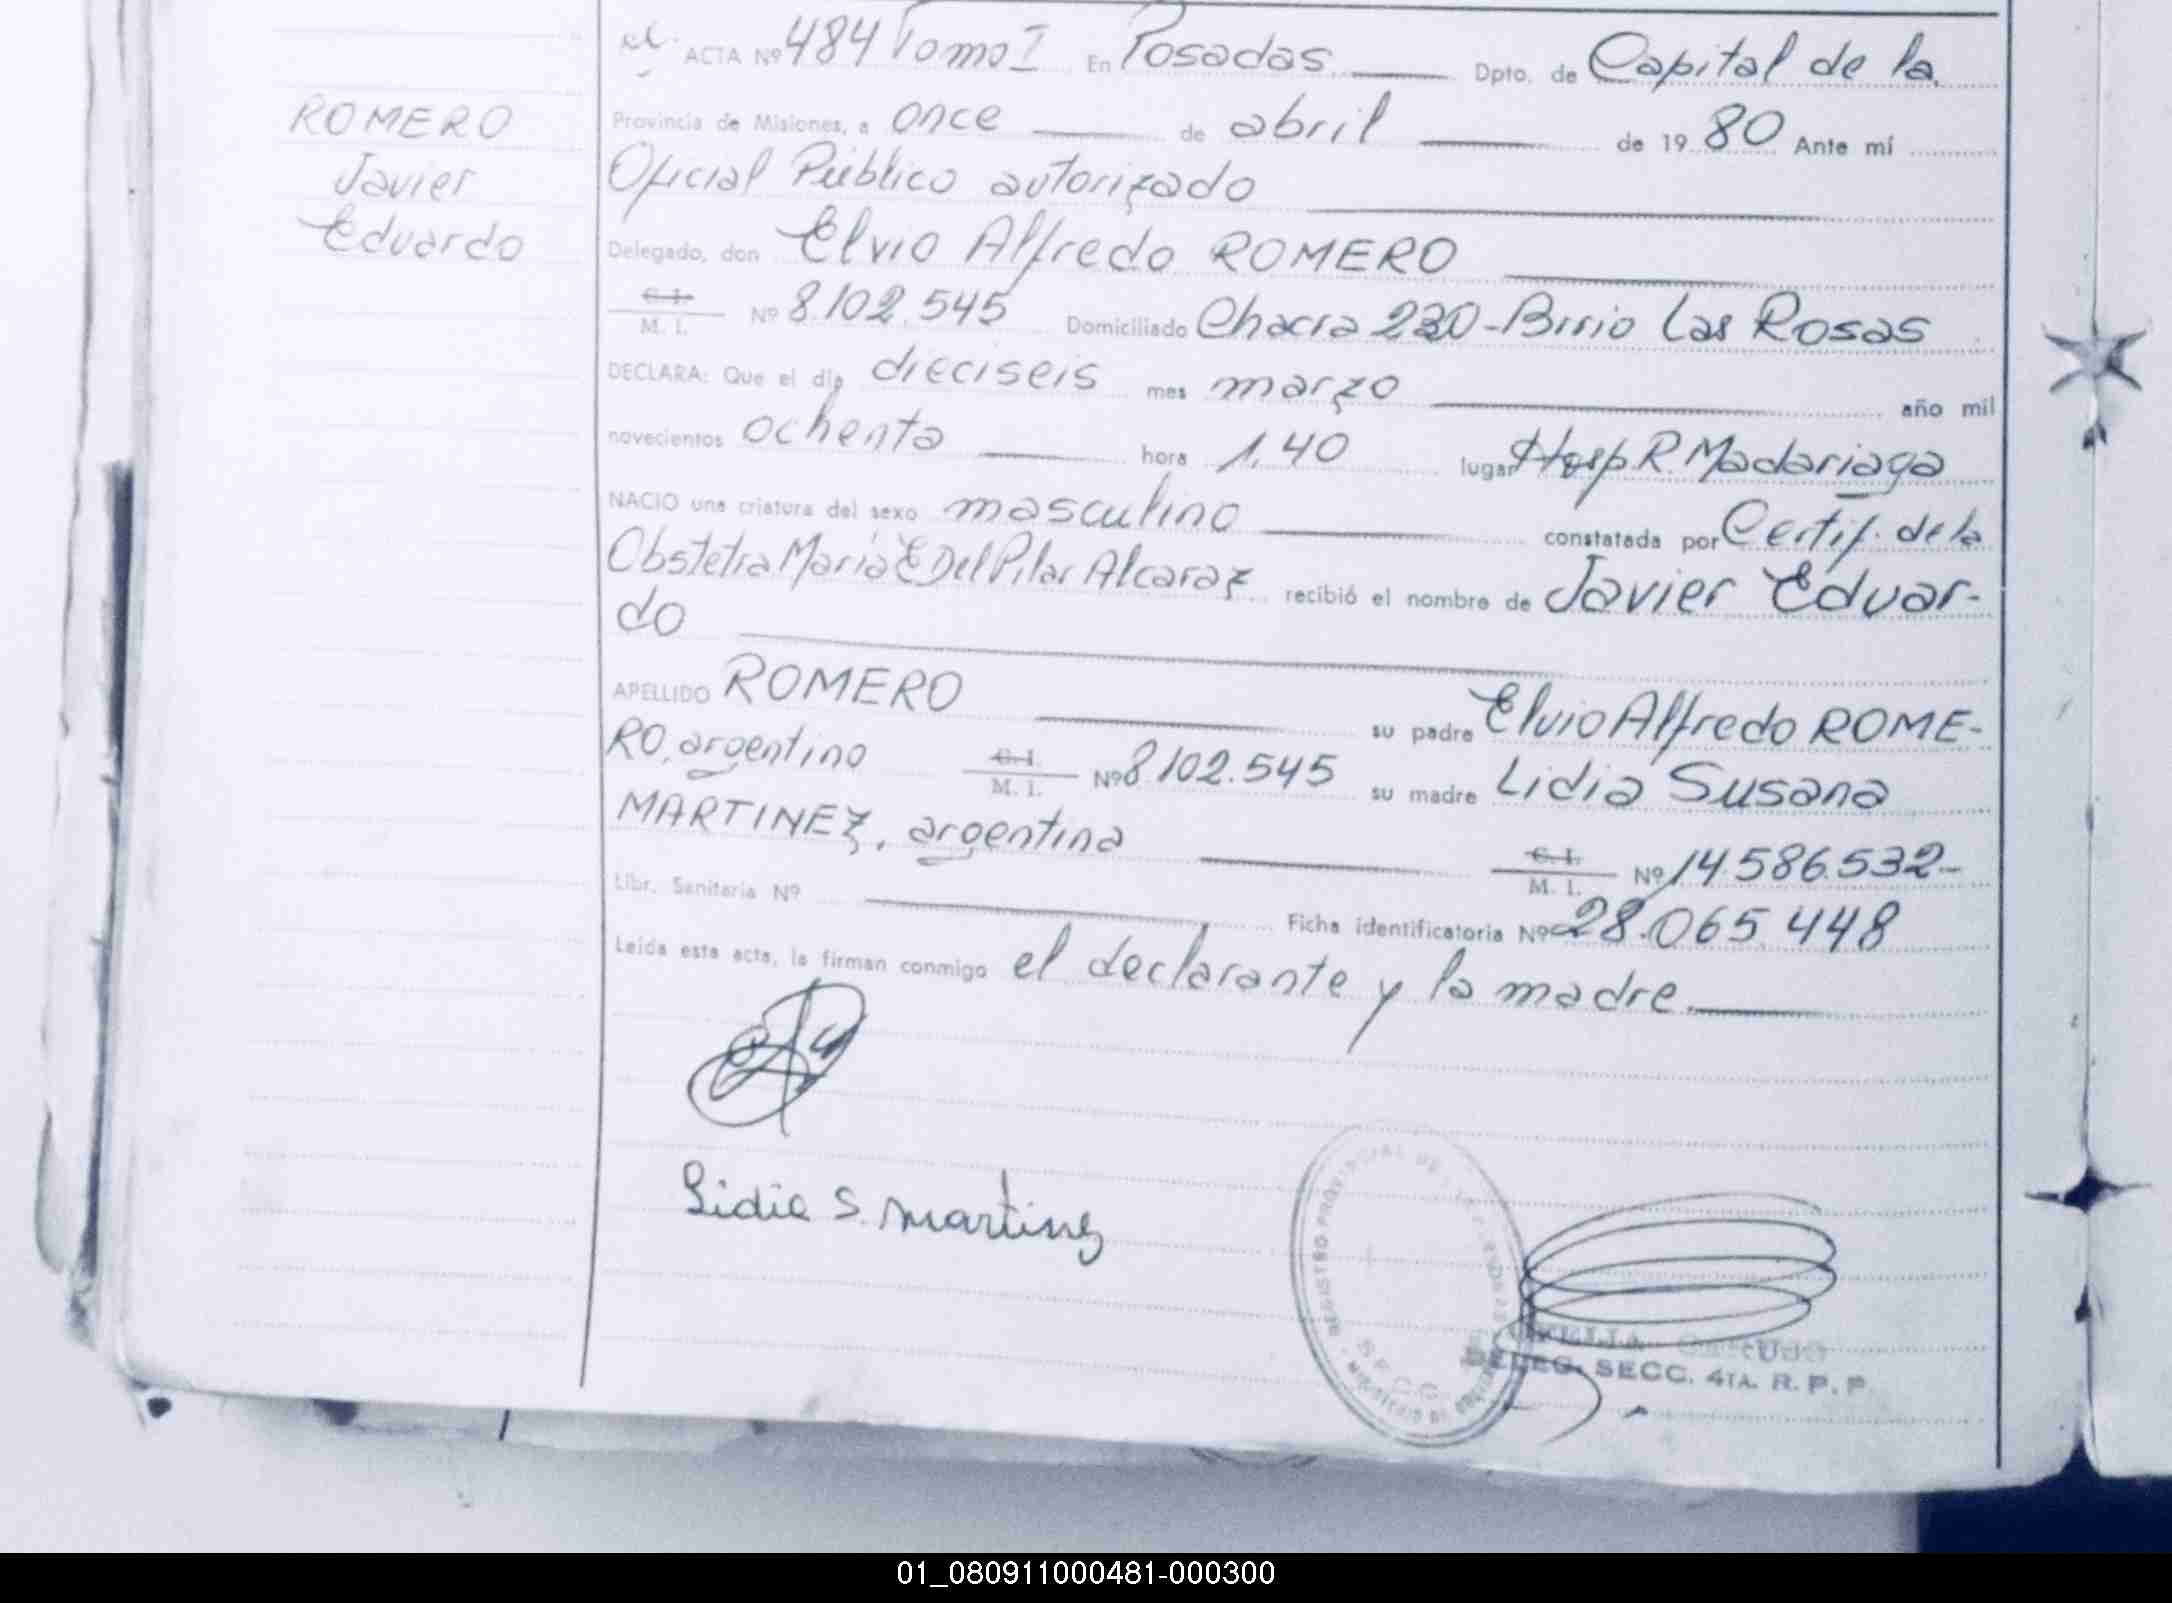 ACTA Nº 484 Tomo I En Posadas Dpto. de Capital de la
ROMERO
Javier
Eduardo
Provincia de Misiones, a once de abril de 19 80 Ante mí
Oficial Público autorizado
Delegado, don Elvio Alfredo ROMERO
C. I. M. I. Nº 8.102.545 Domiciliado Chacra 230-Brrio Las Rosas
DECLARA: Que el día dieciseis mes marzo año mil
novecientos ochenta hora 1,40 lugar Hosp R. Madariaga
NACIO una criatura del sexo masculino constatada por Certif. de la
Obstetra María E Del Pilar Alcaraz recibió el nombre de Javier Eduar-
do
APELLIDO ROMERO su padre Elvio Alfredo ROME-
RO, argentino C. I. M. I. Nº 8.102.545 su madre Lidia Susana
MARTINEZ, argentina C. I. M. I. Nº 14.586.532-
Libr. Sanitaria Nº Ficha identificatoria Nº 28.065.448
Leída esta acta, la firman conmigo el declarante y la madre.
Lidia S. Martinez
REGISTRO PROVINCIAL DE
DELEG. SECC. 4TA. R. P. P.
01_080911000481-000300